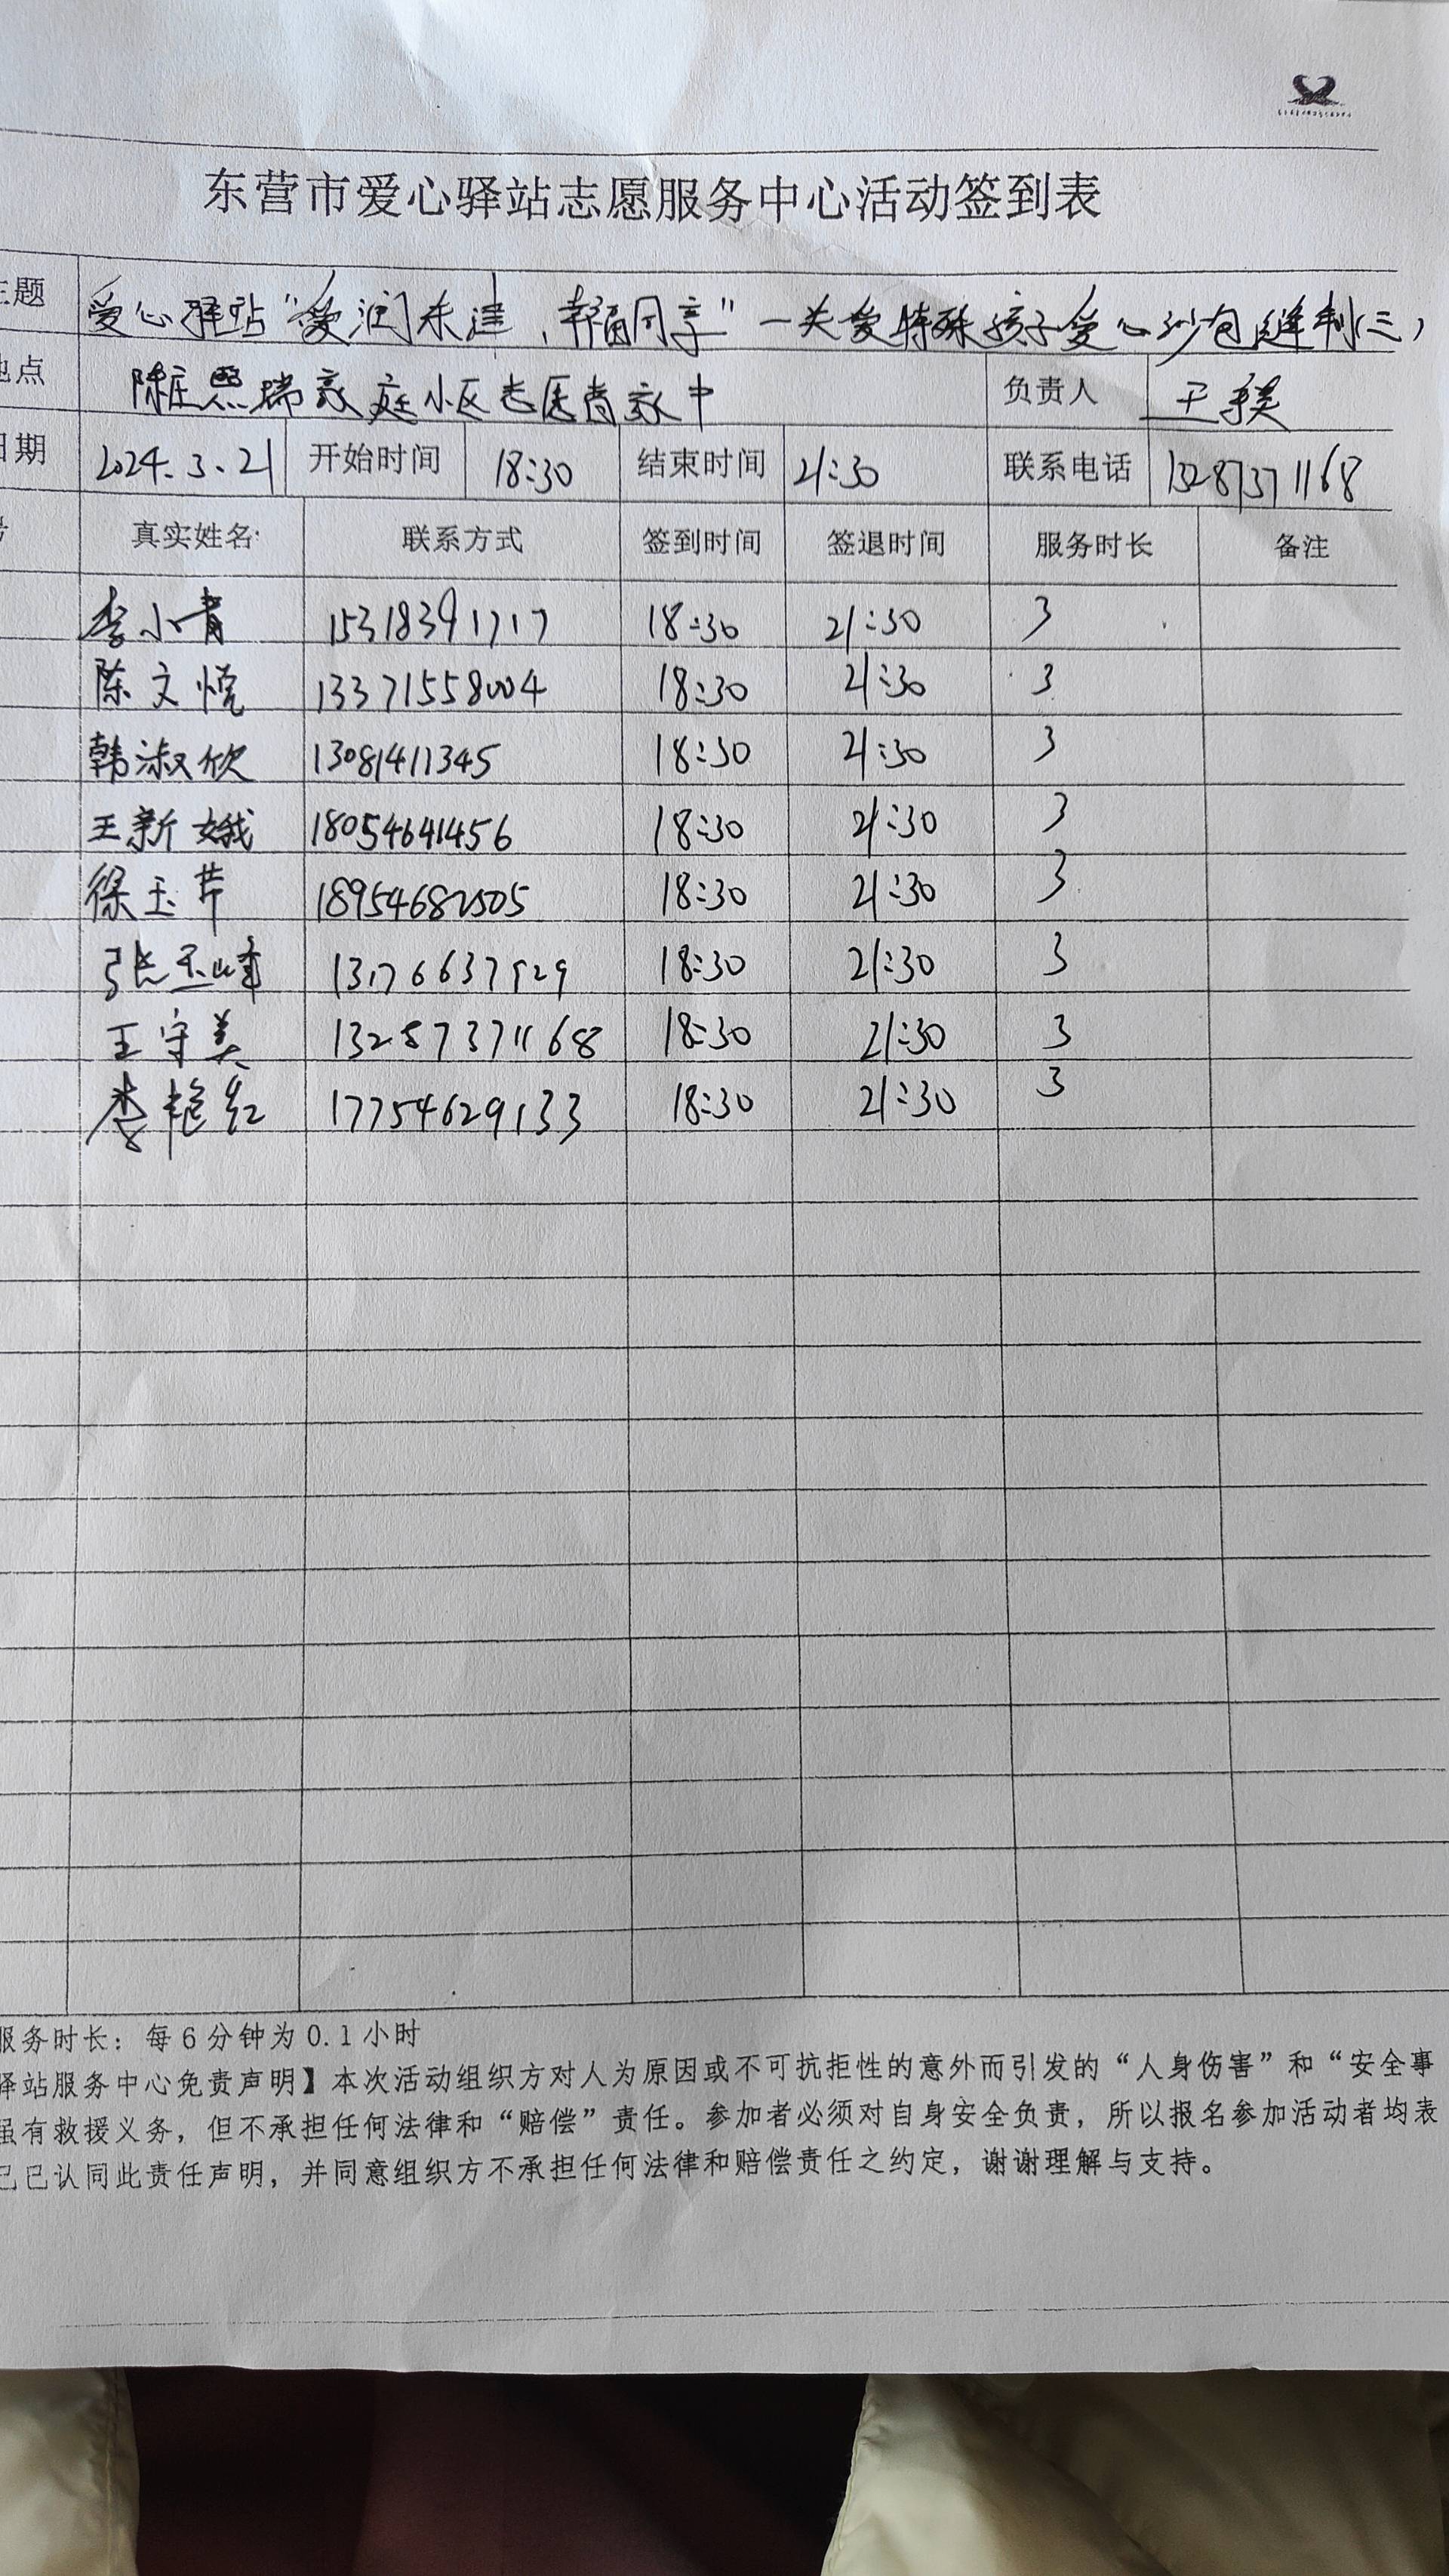 东营市爱心驿站志愿服务中心活动签到表
主题 爱心驿站“爱润东津,幸福同享”一关爱特殊孩子爱心沙包缝制(三)
地点 陈庄熙瑞家庭小区志愿者家中 负责人 王守美
日期 2024.3.21 开始时间 18:30 结束时间 21:30 联系电话 13287371168
号 真实姓名 联系方式 签到时间 签退时间 服务时长 备注
李小青 15318391717 18:30 21:30 3
陈文悦 13371558004 18:30 21:30 3
韩淑欣 13081411345 18:30 21:30 3
王新娥 18054641456 18:30 21:30 3
徐玉芹 18954682505 18:30 21:30 3
张玉峰 13176637929 18:30 21:30 3
王守美 13287371168 18:30 21:30 3
李艳红 17754629133 18:30 21:30 3
服务时长：每6分钟为0.1小时
驿站服务中心免责声明】本次活动组织方对人为原因或不可抗拒性的意外而引发的“人身伤害”和“安全事
虽有救援义务，但不承担任何法律和“赔偿”责任。参加者必须对自身安全负责，所以报名参加活动者均表
己已认同此责任声明，并同意组织方不承担任何法律和赔偿责任之约定，谢谢理解与支持。